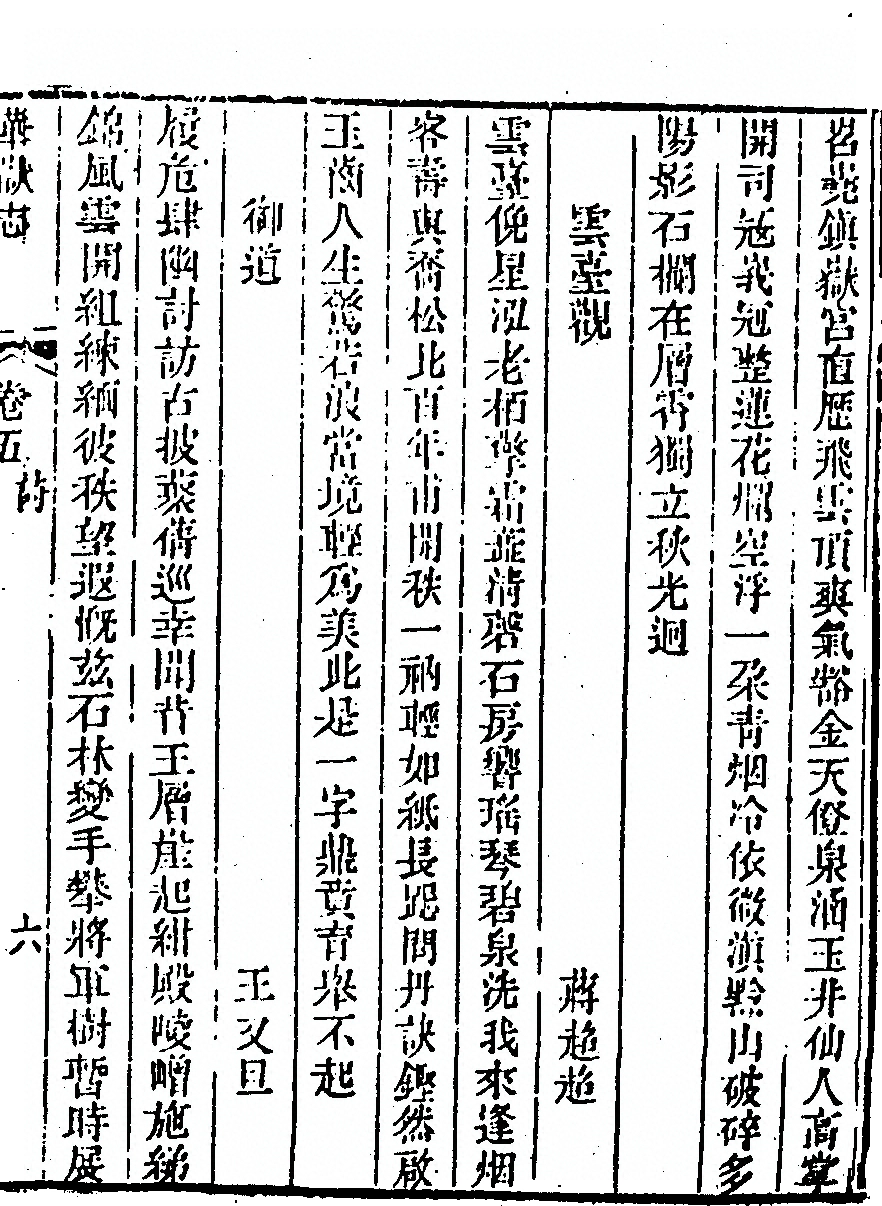 岧嶤鎮嶽宮直歷飛雲頂爽氣豁金天僜泉涵玉井仙人高掌
開司冠峩冠整蓮花爛空浮一朶青烟冷依微滇黔山破碎多
陽影石欄在層霄獨立秋光迥
雲臺觀
蔣趨趨
雲臺俛星泓老栢擎霜蓝清磬石房響瑤琴碧泉洗我來逢烟
客壽與喬松北百年甫開秩一衲輕如紙長跽問丹訣鏗然啟
玉齒人生驚若浪當境輕爲美此是一字鼎賁育举不起
御道
王又旦
履危肆幽討訪古披蒙倩巡幸聞昔王層崖起紺殿崚嶒施綈
錦風雲開組練緬彼秩望遐慨兹石林變手攀將軍樹暫時展
華嶽志
卷五
詩
六